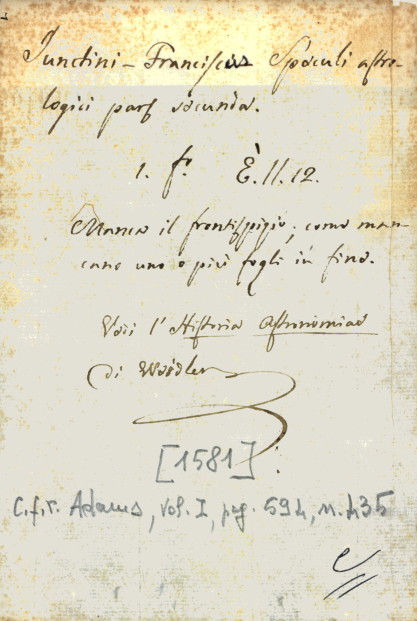 Junctini - Franciscus Speculi astro-
logici pars secunda.
1. f.º È. II. 12.
Manca il frontispizio, come man-
cano uno o più fogli in fine.
Vedi l'Historia Astronomiae
di Weidler
[1581]
C.f.r. Adams, vol. I, pag. 594, n. 435